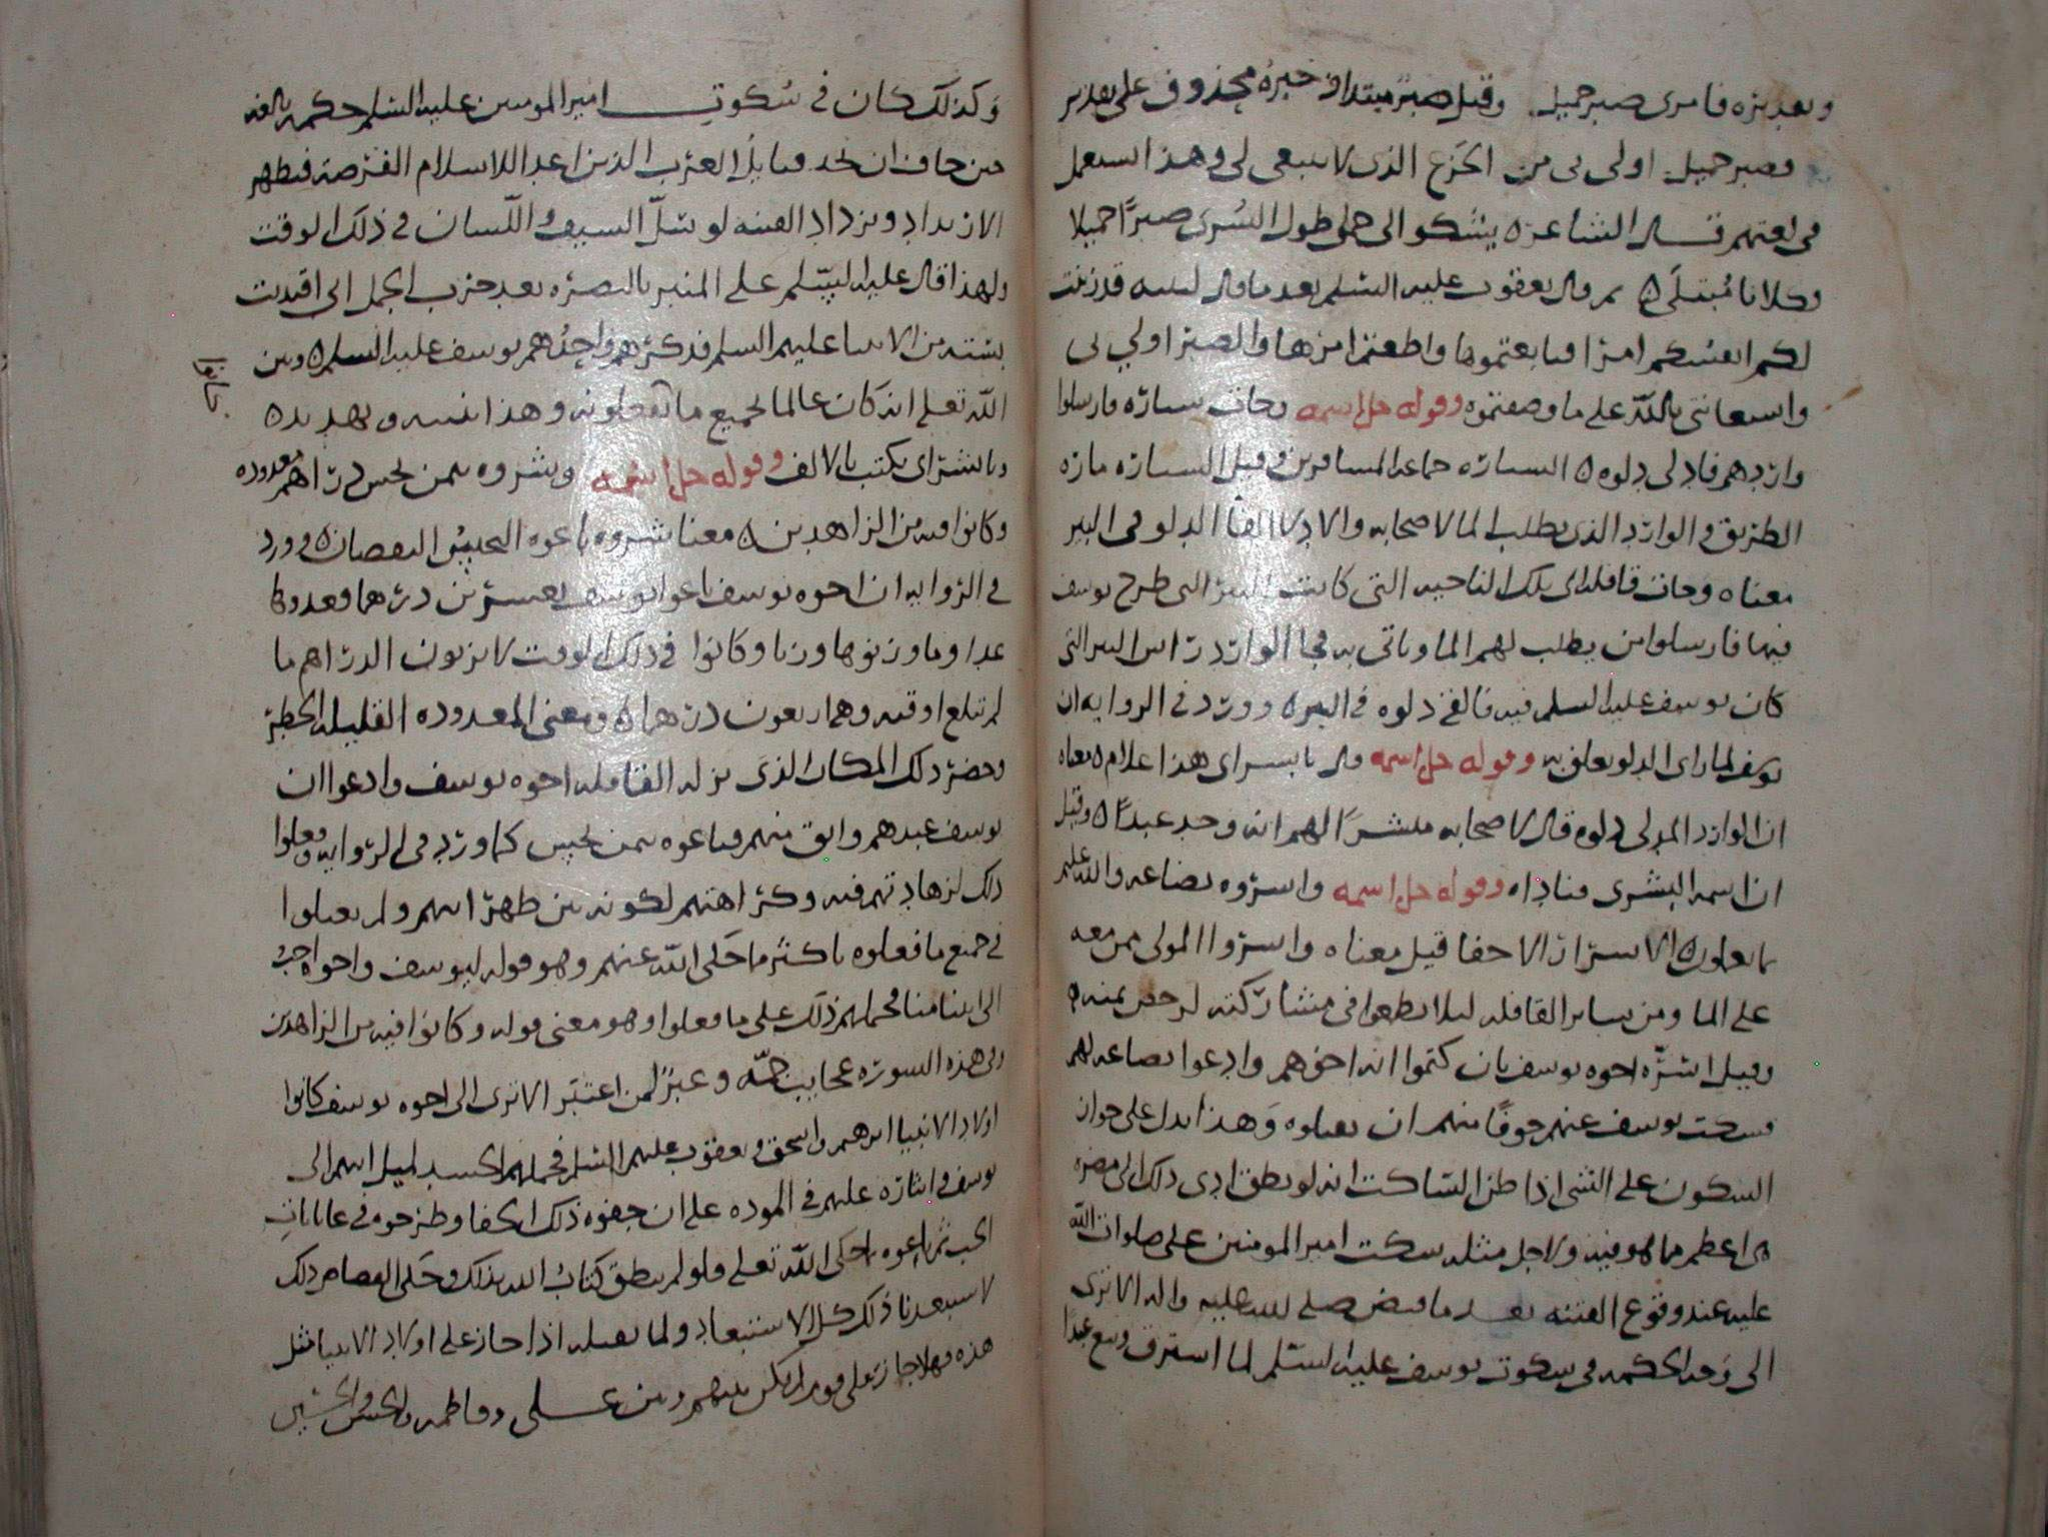 وتقديره فامري صبر جميل وقيل صبر مبتدا وخبره محذوف على تقدير
فصبر جميل اولى بي من الجزع الذي لا ينبغي لي وهذا استعمل
في لغتهم قال الشاعر ه يشكو الي جملي طول السرى صبرًا جميلا
وكلانا مبتلى ه ثم قال يعقوب عليه السلم بعد ما قال لبنيه قد زينت
لكم انفسكم امرا فتابعتموها واطعتم امرها والصبر اولي لي
واستعانتي بالله على ما وصفتموه وقوله جل اسمه وجات سياره فارسلوا
واردهم فادلى دلوه ه السياره جماعه المسافرين وقيل السياره مارة
الطريق والوارد الذي يطلب الما لاصحابه والادلا القا الدلو في البير
معناه وجات قافله الى تلك الناحيه التي كانت البير التي طرح يوسف
فيها فارسلوا من يطلب لهم الما وياتي به فجا الوارد راس البير التي
كان يوسف عليه السلم فيه فالقى دلوه في البير ه وورد في الروايه ان
يوسف لما راى الدلو تعلق به وقوله جل اسمه قال يا بشراي هذا غلام ه معناه
ان الوارد المدلى دلوه قال لاصحابه مبشرًا لهم انه وجد عبدًا ه وقيل
ان اسمه البشرى فناداه وقوله جل اسمه واسروه بضاعه والله عليم
بما يعملون ه الاسرار الاخفا قيل معناه واسروا المولى ممن معه
على الما ومن ساير القافله ليلا يطمعوا في مشاركته لرخص ثمنه ه
وقيل اسره اخوه يوسف بان كتموا انه اخوهم وادعوا بضاعه لهم
فسكت يوسف عنهم خوفًا منهم ان يقتلوه وهذا يدل على جواز
السكوت على الشي اذا ظن الساكت انه لو نطق ادى ذلك الى مضره
هي اعظم مما هو فيه ولاجل مثله سكت امير المومنين على صلوات الله
عليه عند وقوع الفتنه بعد ما قبض صلى الله عليه واله الا ترى
الى وجه الحكمه في سكوت يوسف عليه السلم لما استرق وبيع عبدًا
وكذلك كان في سكوت امير المومنين عليه السلم حكمه بالغه
حين خاف ان تجد قبايل العرب الذين اعد اللاسلام الفرصه فيظهر
الارتداد ويزداد الفتنه لو سل السيف واللسان في ذلك الوقت
ولهذا قال عليه السلم على المنبر بالبصره بعد حرب الجمل اني اقتديت
بسته من الانبيا عليهم السلم فذكرهم واحدهم يوسف عليه السلم ه وبين
الله تعالى انه كان عالما بجميع ما يفعلونه وهذا تنبيه وتهديد ه
ويا بشراي يكتب بالالف وقوله جل اسمه وشروه بثمن بخس دراهم معدوده
وكانوا فيه من الزاهدين ه معنا شروه باعوه البخس النقصان ه وورد
في الروايه ان اخوه يوسف باعوا يوسف بعشرين درهما فعدوها
عدا وما وزنوها وزنا وكانوا في ذلك الوقت لا يزنون الدراهم ما
لم تبلغ اوقيه وهي اربعون درهما ه ومعنى المعدوده القليله الخطر
وحضر ذلك المكان الذي نزله القافله اخوه يوسف وادعوا ان
يوسف عبدهم وابق منهم فباعوه بثمن بخس كما ورد في الروايه وفعلوا
ذلك لزهادتهم فيه وكراهتهم لكونه بين ظهرانيهم ولم يفعلوا
في جميع ما فعلوه باكثر ما حكى الله عنهم وهو قوله ليوسف واخوه احب
الى ابينا منا فحملهم ذلك على ما فعلوا وهو معنى قوله وكانوا فيه من الزاهدين
وفي هذه السوره عجايب جمه وعبر لمن اعتبر الا ترى الى اخوه يوسف كانوا
اولاد الانبيا ابرهيم واسحق ويعقوب عليهم السلم فحملهم الحسد لميل ابيهم الى
يوسف وايثاره عليهم في الموده على ان جفوه ذلك الجفا وطرحوه في غيابات
الجب ثم باعوه ما حكى الله تعالى ولو لم ينطق كتاب الله بذلك وحكى القصاص ذلك
لاستبعدنا ذلك كل الاستبعاد ولما نقبله اذا جاز على اولاد الانبيا مثل
هذه فهلا جاز على قوم لم يكن بينهم وبين على وفاطمه والحسن والحسين